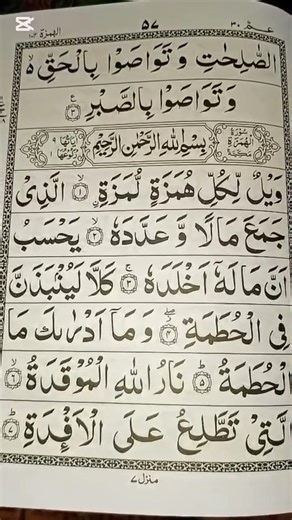 CapCut
عـــمّ ٣٠ ٥٧ الهمزة ١٠٤
الصّٰلِحٰتِ وَ تَوَاصَوْا بِالْحَقِّ ۙ
وَ تَوَاصَوْا بِالصَّبْرِ ۝٣ ع
سُوْرَةُ الْهُمَزَةِ مَكِّيَّةٌ بِسْمِ اللّٰهِ الرَّحْمٰنِ الرَّحِيْمِ اٰيَاتُهَا ٩ رُكُوْعُهَا ١
وَيْلٌ لِّكُلِّ هُمَزَةٍ لُّمَزَةِ ۝١ۙ ۨالَّذِيْ
جَمَعَ مَالًا وَّ عَدَّدَهٗ ۝٢ۙ يَحْسَبُ
اَنَّ مَالَهٗۤ اَخْلَدَهٗ ۝٣ۚ كَلَّا لَيُنْۢبَذَنَّ
فِي الْحُطَمَةِ ۝٤ۖ وَ مَاۤ اَدْرٰىكَ مَا
الْحُطَمَةُ ۝٥ؕ نَارُ اللّٰهِ الْمُوْقَدَةُ ۝٦ۙ
الَّتِيْ تَطَّلِعُ عَلَى الْاَفْـِٕدَةِ ۝٧ؕ
منزل ٧